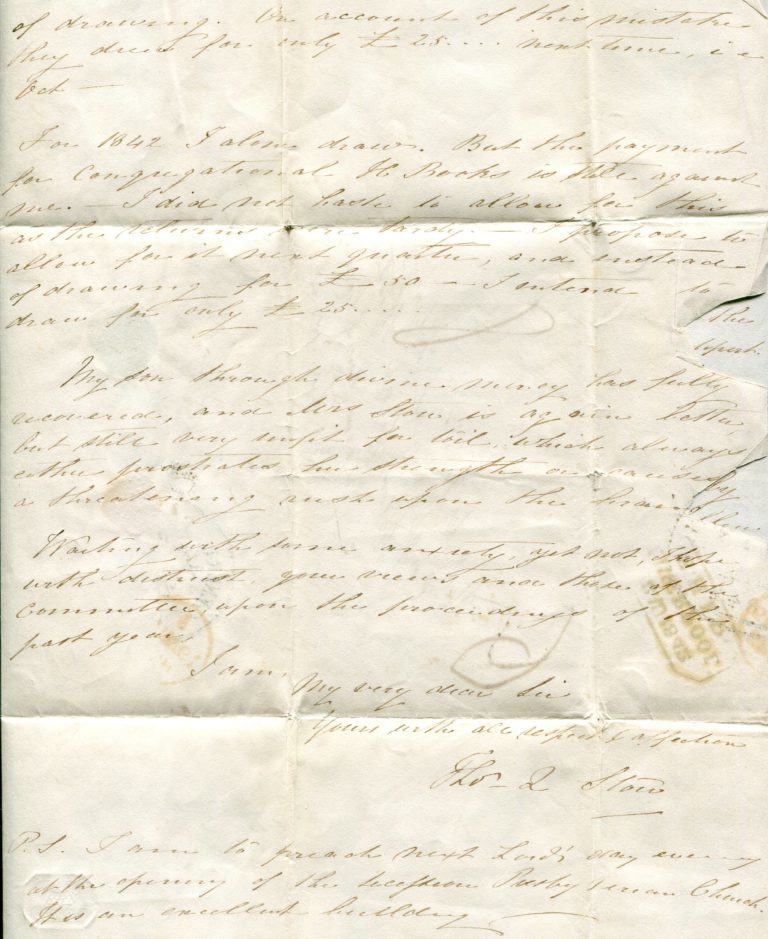 of drawing. On account of this mistake
they drew for only £ 25.... next time, i e
Oct —
For 1842 I alone draw. But the payment
for Congregational H Books is still against
me. — I did not haste to allow for this
as the returns were tardy. — I propose to
allow for it next quarter, and instead
of drawing for £ 50 — I intend to
draw for only £ 25....
the
upon
My son through divine mercy has fully
recovered, and Mrs Stow is again better
but still very unfit for toil, which always
either prostrates her strength or causes
a threatening rush upon the brain
Waiting with some anxiety, yet not, I hope
with distrust, your views and those of the
Committee upon the proceedings of the
past year,
I am,
My very dear Sir
Yours with all respect & affection
Thos Q Stow
P.S. I am to preach next Lord's day evening
at the opening of the Secession Presbyterian Church.
It is an excellent building